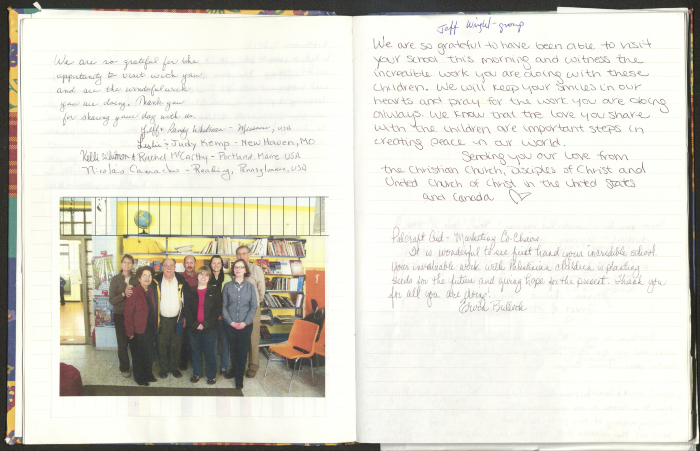 We are so grateful for the
opportunity to visit with you
and see the wonderful work
you are doing. Thank you
for sharing your day with us.
Jeff & Sandy Whitman - Missouri, USA
Leslie & Judy Kemp - New Haven, MO
Kelli Whitman & Rachel McCarthy - Portland, Maine USA
Nicolas Camacho - Reading, Pennsylvania, USA
Jeff Wright-group
We are so grateful to have been able to visit
your school this morning and witness the
incredible work you are doing with these
children. We will keep your smiles in our
hearts and pray for the work you are doing
always. We know that the love you share
with the children are important steps in
creating peace in our world.
Sending you our love from
the Christian Church, Disciples of Christ and
United Church of Christ in the United States
and Canada
Marketing Co-Chairs
It is wonderful to see first hand your incredible school
Your invaluable work with Palestinian children is planting
seeds for the future and giving hope for the present. Thank you
for all you are doing!
Bullock